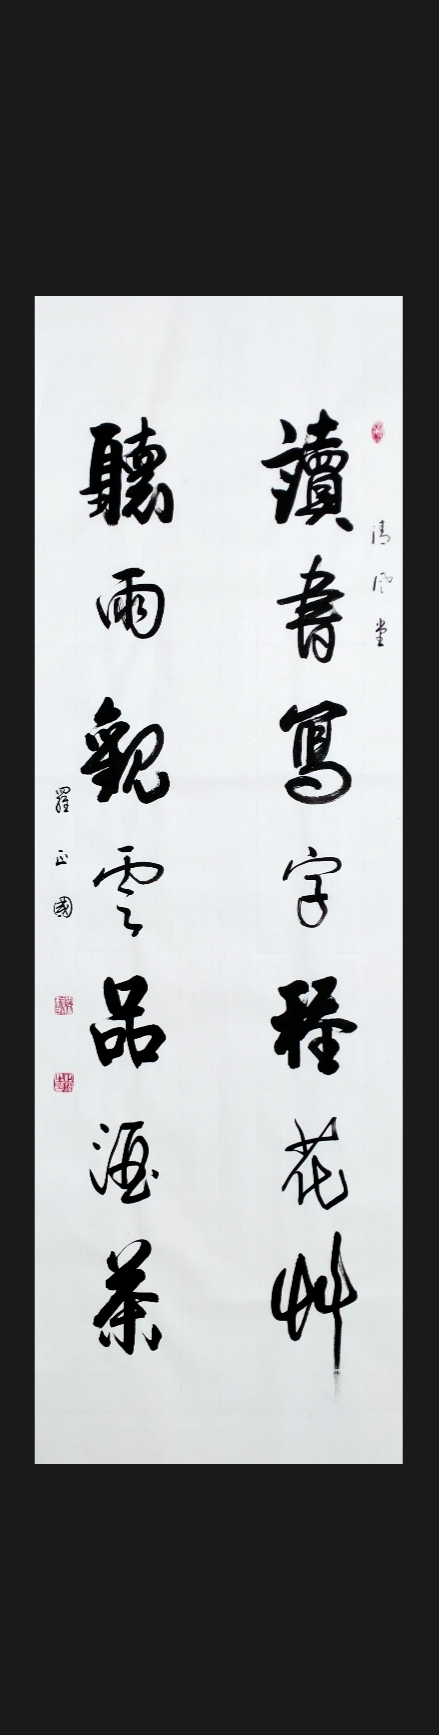 清風堂
讀書寫字種花艸
聽雨觀雲品酒茶
羅正國